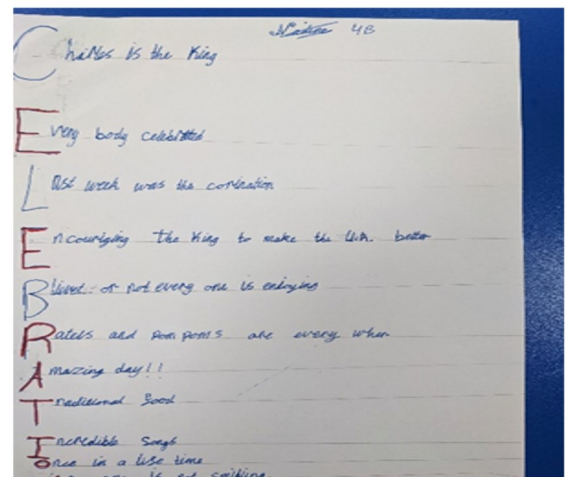 Nadine 4B
Charles is the King
Every body celebrated
Last week was the cortnation
Encouriging the King to make the U.K. better
Blivet or not every one is enjoying
Ratels and pom poms are every wher
Amazing day!!
Traditional food
Incredible songs
Once in a life time
one is not smiling